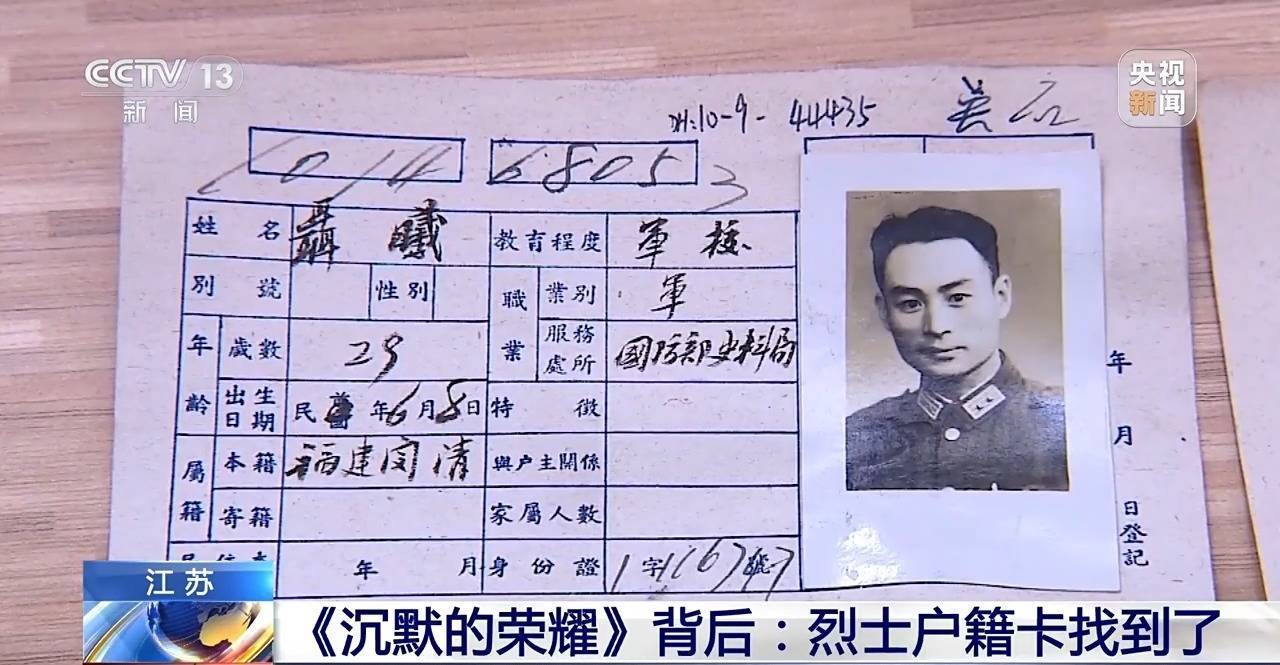 CCTV 13
新闻
央视
新闻
10-9- 44435 吴石
1014 68053
姓名 聶曦 教育程度 軍校
別號 性別 職業 業別 軍
年齡 歲數 29 服務處所 國防部史料局
出生日期 民 年6月8日 特徵
屬籍 本籍 福建闽清 與户主關係
寄籍 家屬人數
年 月 身份證 字 號
年 月 日登記
江苏
《沉默的荣耀》背后：烈士户籍卡找到了